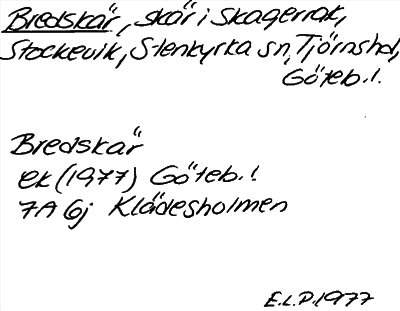 Bredskär, skär i Skagerrak,
Stockevik, Stenkyrka sn, Tjörns hd,
Göteb.l.
Bredskär
ek (1977) Göteb.l
7A 6j Klädesholmen
E.L.P.1977